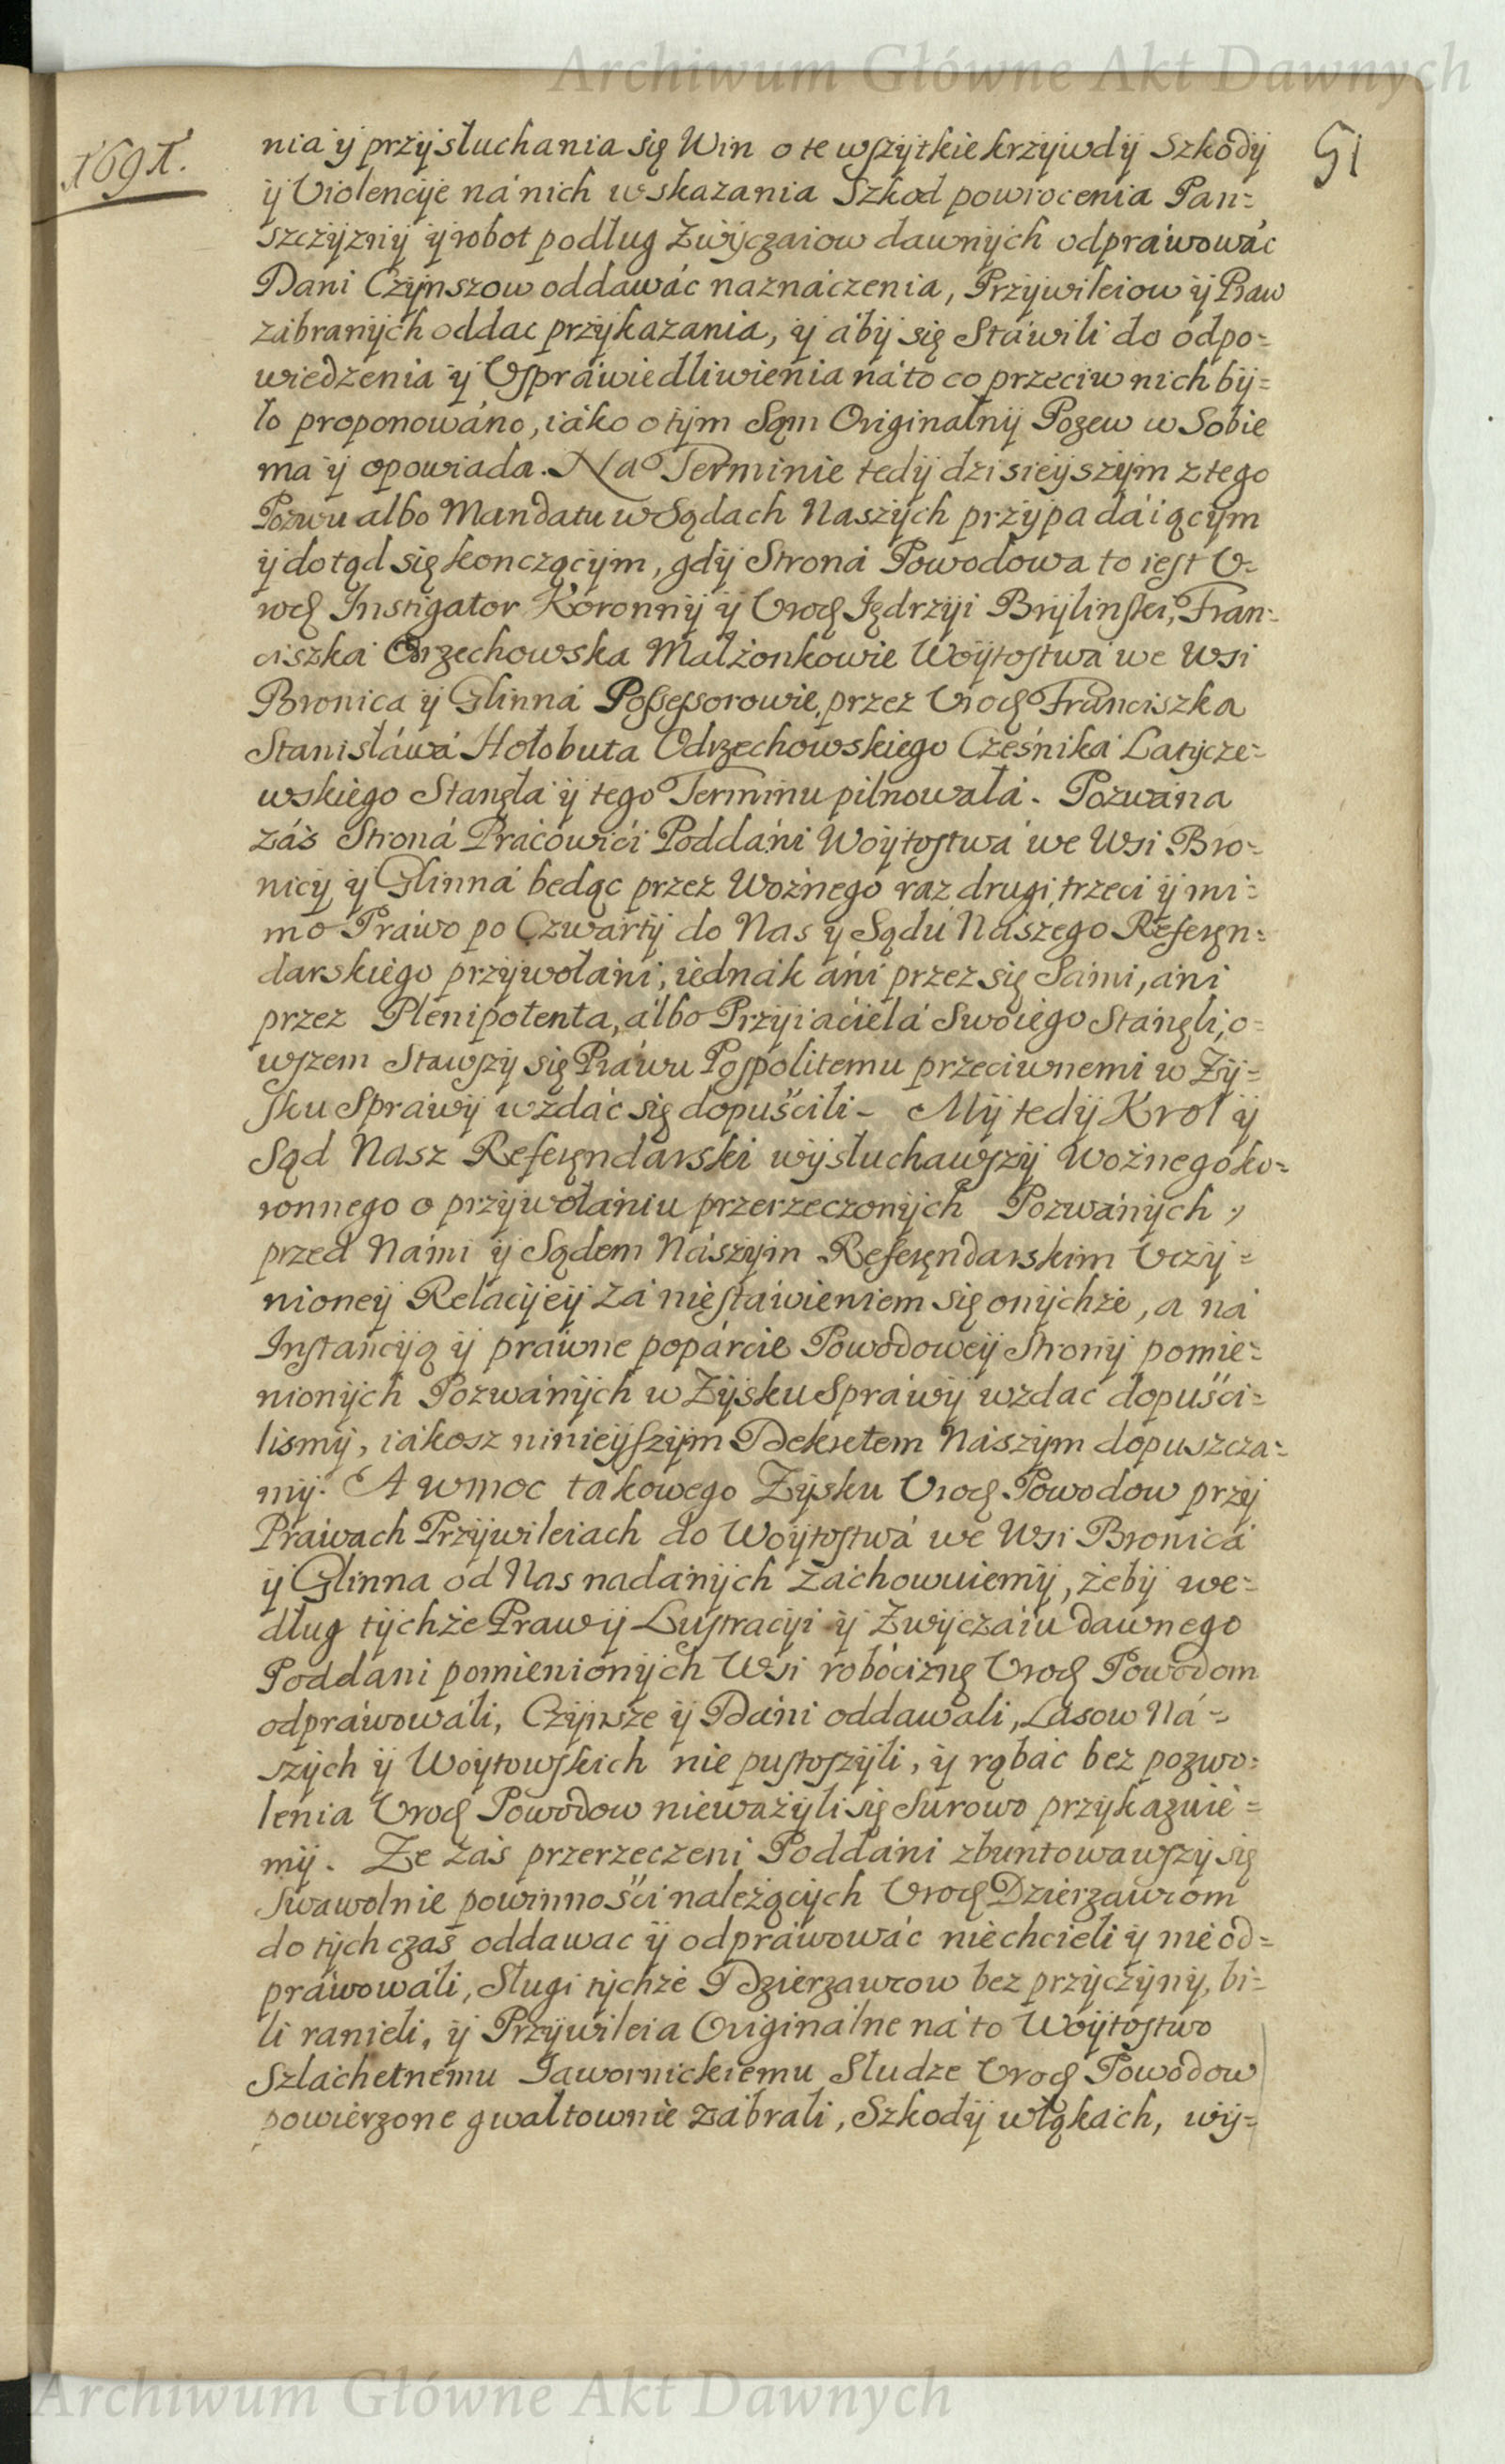 Archiwum Główne Akt Dawnych
1691.
51
nia ÿ przÿsłuchania się Win o te wszÿtkie krzÿwdÿ Szkodÿ
ÿ Violencÿe ná nich wskazania Szkod powrocenia Pan=
szczÿznÿ ÿ robot podług Zwÿczaiow dawnÿch odpráwowáć
Dani Czÿnszow oddawáć naznáczenia, Przÿwileiow ÿ Praw
zábranÿch oddac przÿkazania, ÿ ábÿ się Stáwili do odpo=
wiedzenia ÿ Vspráwiedliwienia ná to co przeciw nich bÿ=
ło proponowáno, iáko o tÿm Sąm Originalnÿ Pozew w Sobie
ma ÿ opowiada. Na Terminie tedÿ dzisieÿszÿm z tego
Pozwu albo Mandatu w Sądach Naszÿch przÿpadáiącÿm
ÿ dotąd się konczącÿm, gdÿ Stroná Powodowa to iest V=
rodz Instigator Koronnÿ ÿ Urodz Iędrzÿi Brÿlinski, Fran=
ciszka Orzechowska Małżonkowie Woÿtostwá we Wsi
Bronica ÿ Glinná Possessorowie, przez Urodz Franciszka
Stanisłáwá Hołobuta Odrzechowskiego Cześniká Latÿcze=
wskiego Stanęła ÿ tego Terminu pilnowałá. Pozwána
záś Stroná Prácowići Poddáni Woÿtostwá we Wsi Bro=
nicÿ ÿ Glinná bedąc przez Woźnego raz drugi, trzeci ÿ mi=
mo Práwo po Czwártÿ do Nas ÿ Sądu Nászego Referęn=
darskiego przÿwołáni, iednák áni przez się Sámi, áni
przez Plenipotenta, álbo Przÿiacielá Swoiego Stánęli, o=
wszem Stawszÿ się Práwu Pospolitemu przeciwnemi w Zÿ=
sku Spráwÿ wzdáć się dopuścili. Mÿ tedÿ Krol ÿ
Sąd Nasz Referęndarski wÿsłuchawszÿ Woźnego ko=
ronnego o przÿwołániu przerzeczonÿch Pozwánÿch,
przed Námi ÿ Sądem Nászÿm Referęndarskim Vczÿ=
nioneÿ Relacÿeÿ zá niestáwieniem się onÿchże, a ná
Instáncÿą ÿ práwne popárcie Powodoweÿ Stronÿ pomie=
nionÿch Pozwánÿch w Zÿsku Spráwÿ wzdać dopuści=
lismÿ, iákosz ninieÿszÿm Dekretem Nászym dopuszcza=
mÿ. A w moc takowego Zÿsku Urodz Powodow przÿ
Práwach Przÿwileiach do Woÿtostwá we Wsi Bronicá
ÿ Glinna od Nas nadánÿch záchowuiemÿ, żebÿ we=
dług tÿchże Praw ÿ Lustracÿi ÿ Zwÿczáiu dawnego
Poddáni pomienionÿch Wsi robociznę Urodz Powodom
odpráwowáli, Czÿnsze ÿ Dáni oddawali, Lásow Ná=
szÿch ÿ Woÿtowskich nie pustoszÿli, ÿ rąbác bez pozwo=
lenia Urodz Powodow nieważÿli się Surowo przÿkazuie=
mÿ. Ze záś przerzeczeni Poddáni zbuntowawszÿ się
Swawolnie powinności należącÿch Urodz Dzierzawcom
do tÿch czas oddawac ÿ odpráwowáć niechcieli ÿ nieod=
práwowáli, Sługi tÿchże Dzierzawcow bez przÿczÿnÿ, bi=
li ranieli, ÿ Przÿwileia Originálne ná to Woÿtostwo
Szlachetnemu Jawornickiemu Słudze Urodz Powodow
powierzone gwałtownie zábrali, Szkodÿ w łąkách, wÿ=
Archiwum Główne Akt Dawnych